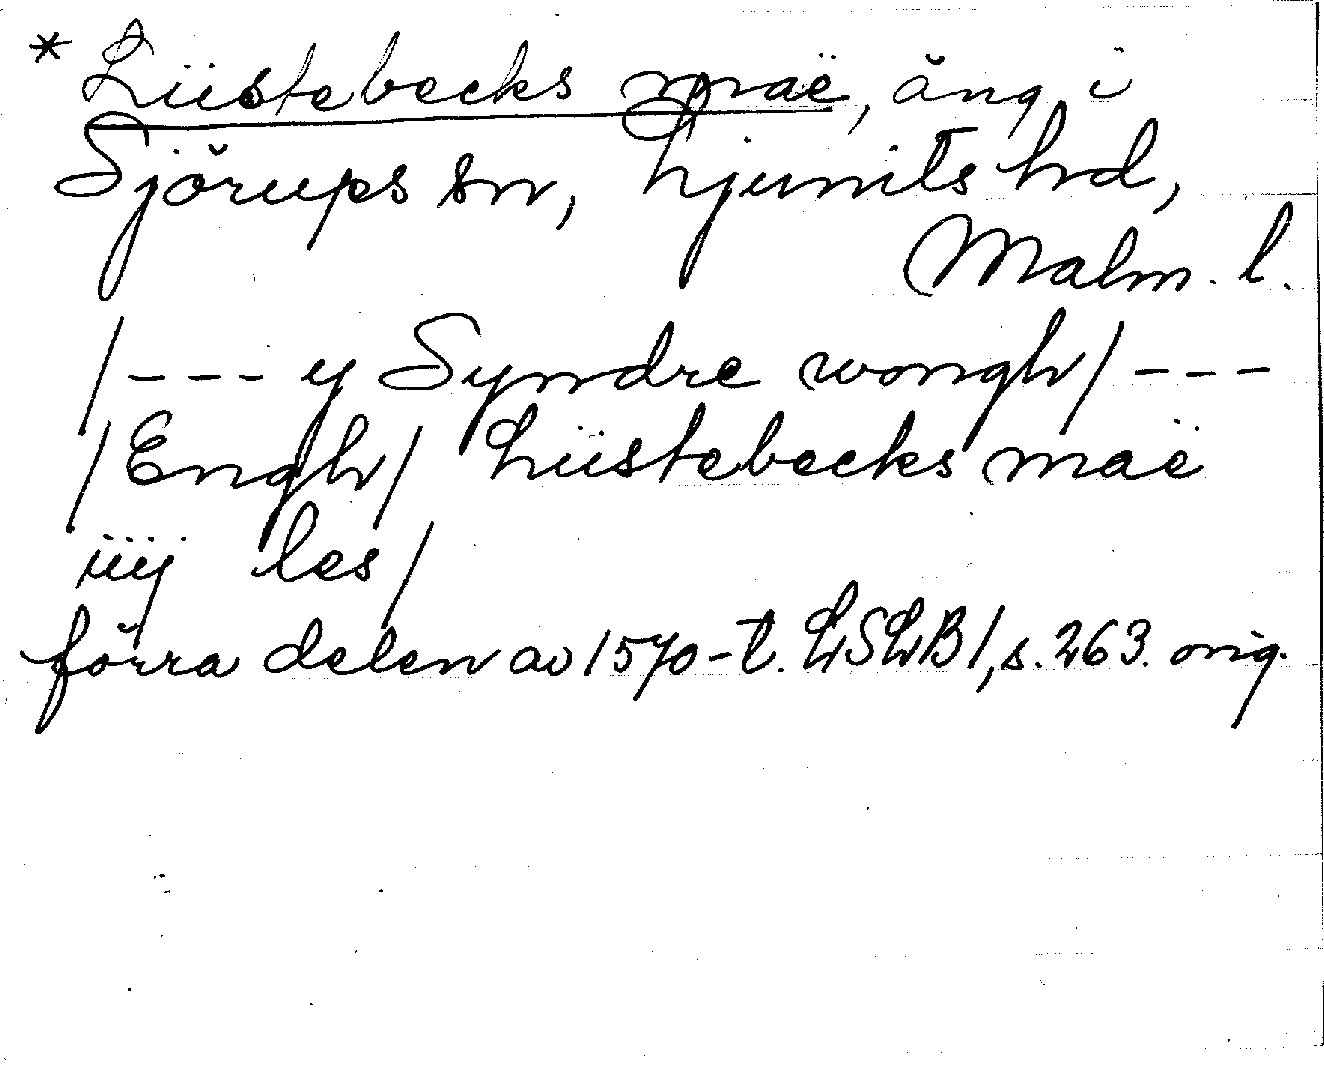 * Lüstebecks maë, äng i
Sjörups sn, Ljunits hd,
Malm. l.
/--- y Syndre wongh/ ---
/Engh/ Lüstebecks maë
iiij les/
förra delen av 1570-t. LSLB 1, s. 263. orig.